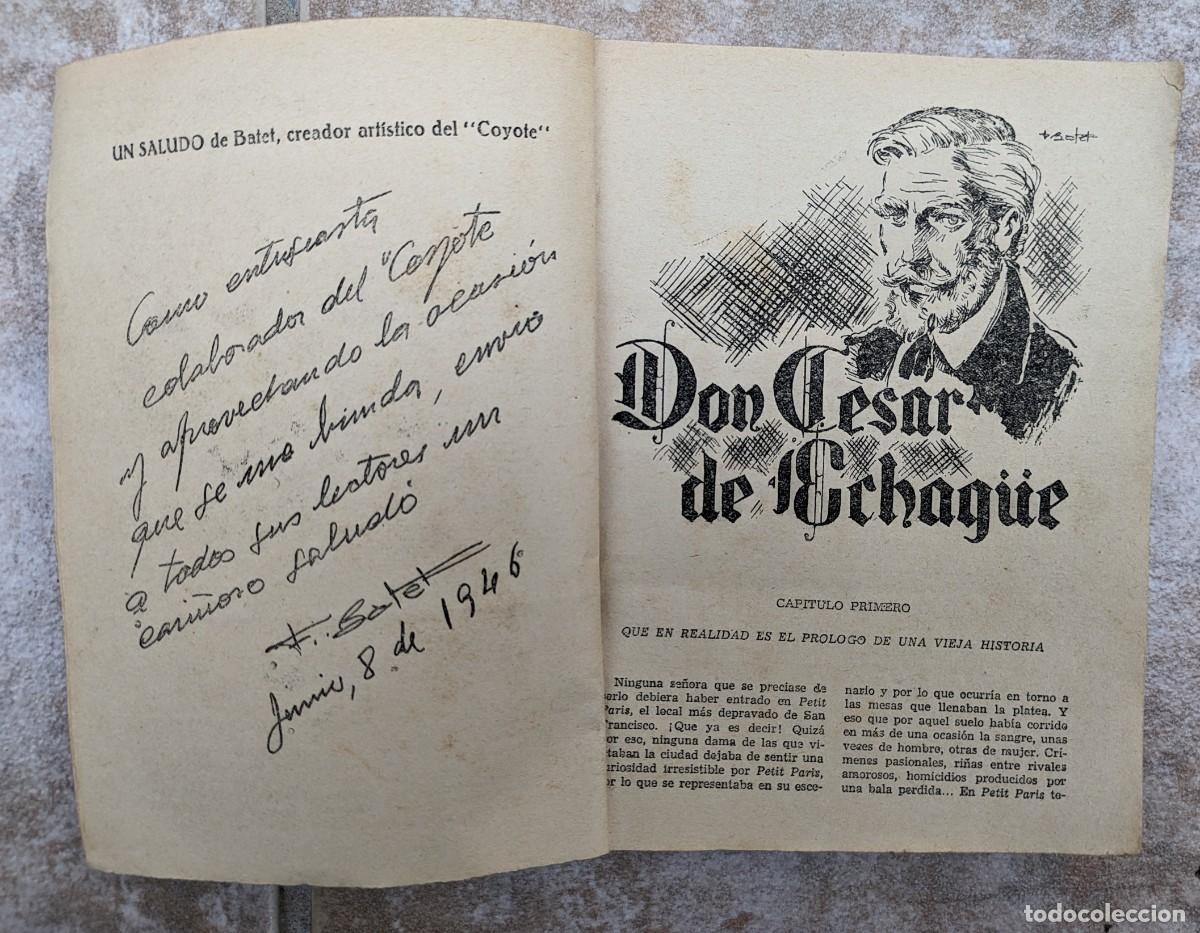 UN SALUDO de Batet, creador artístico del "Coyote"
Como entusiasta
colaborador del "Coyote
y aprovechando la ocasión
que se me brinda, envio
a todos sus lectores un
cariñoso saludo
F. Batet
Junio, 8 de 1946
F Batet
Don Cesar
de Echagüe
CAPITULO PRIMERO
QUE EN REALIDAD ES EL PROLOGO DE UNA VIEJA HISTORIA
Ninguna señora que se preciase de
serlo debiera haber entrado en Petit
Paris, el local más depravado de San
Francisco. ¡Que ya es decir! Quizá
por eso, ninguna dama de las que vi-
sitaban la ciudad dejaba de sentir una
curiosidad irresistible por Petit Paris,
por lo que se representaba en su esce-
nario y por lo que ocurría en torno a
las mesas que llenaban la platea. Y
eso que por aquel suelo había corrido
en más de una ocasión la sangre, unas
veces de hombre, otras de mujer. Crí-
menes pasionales, riñas entre rivales
amorosos, homicidios producidos por
una bala perdida... En Petit Paris to-
todocoleccion